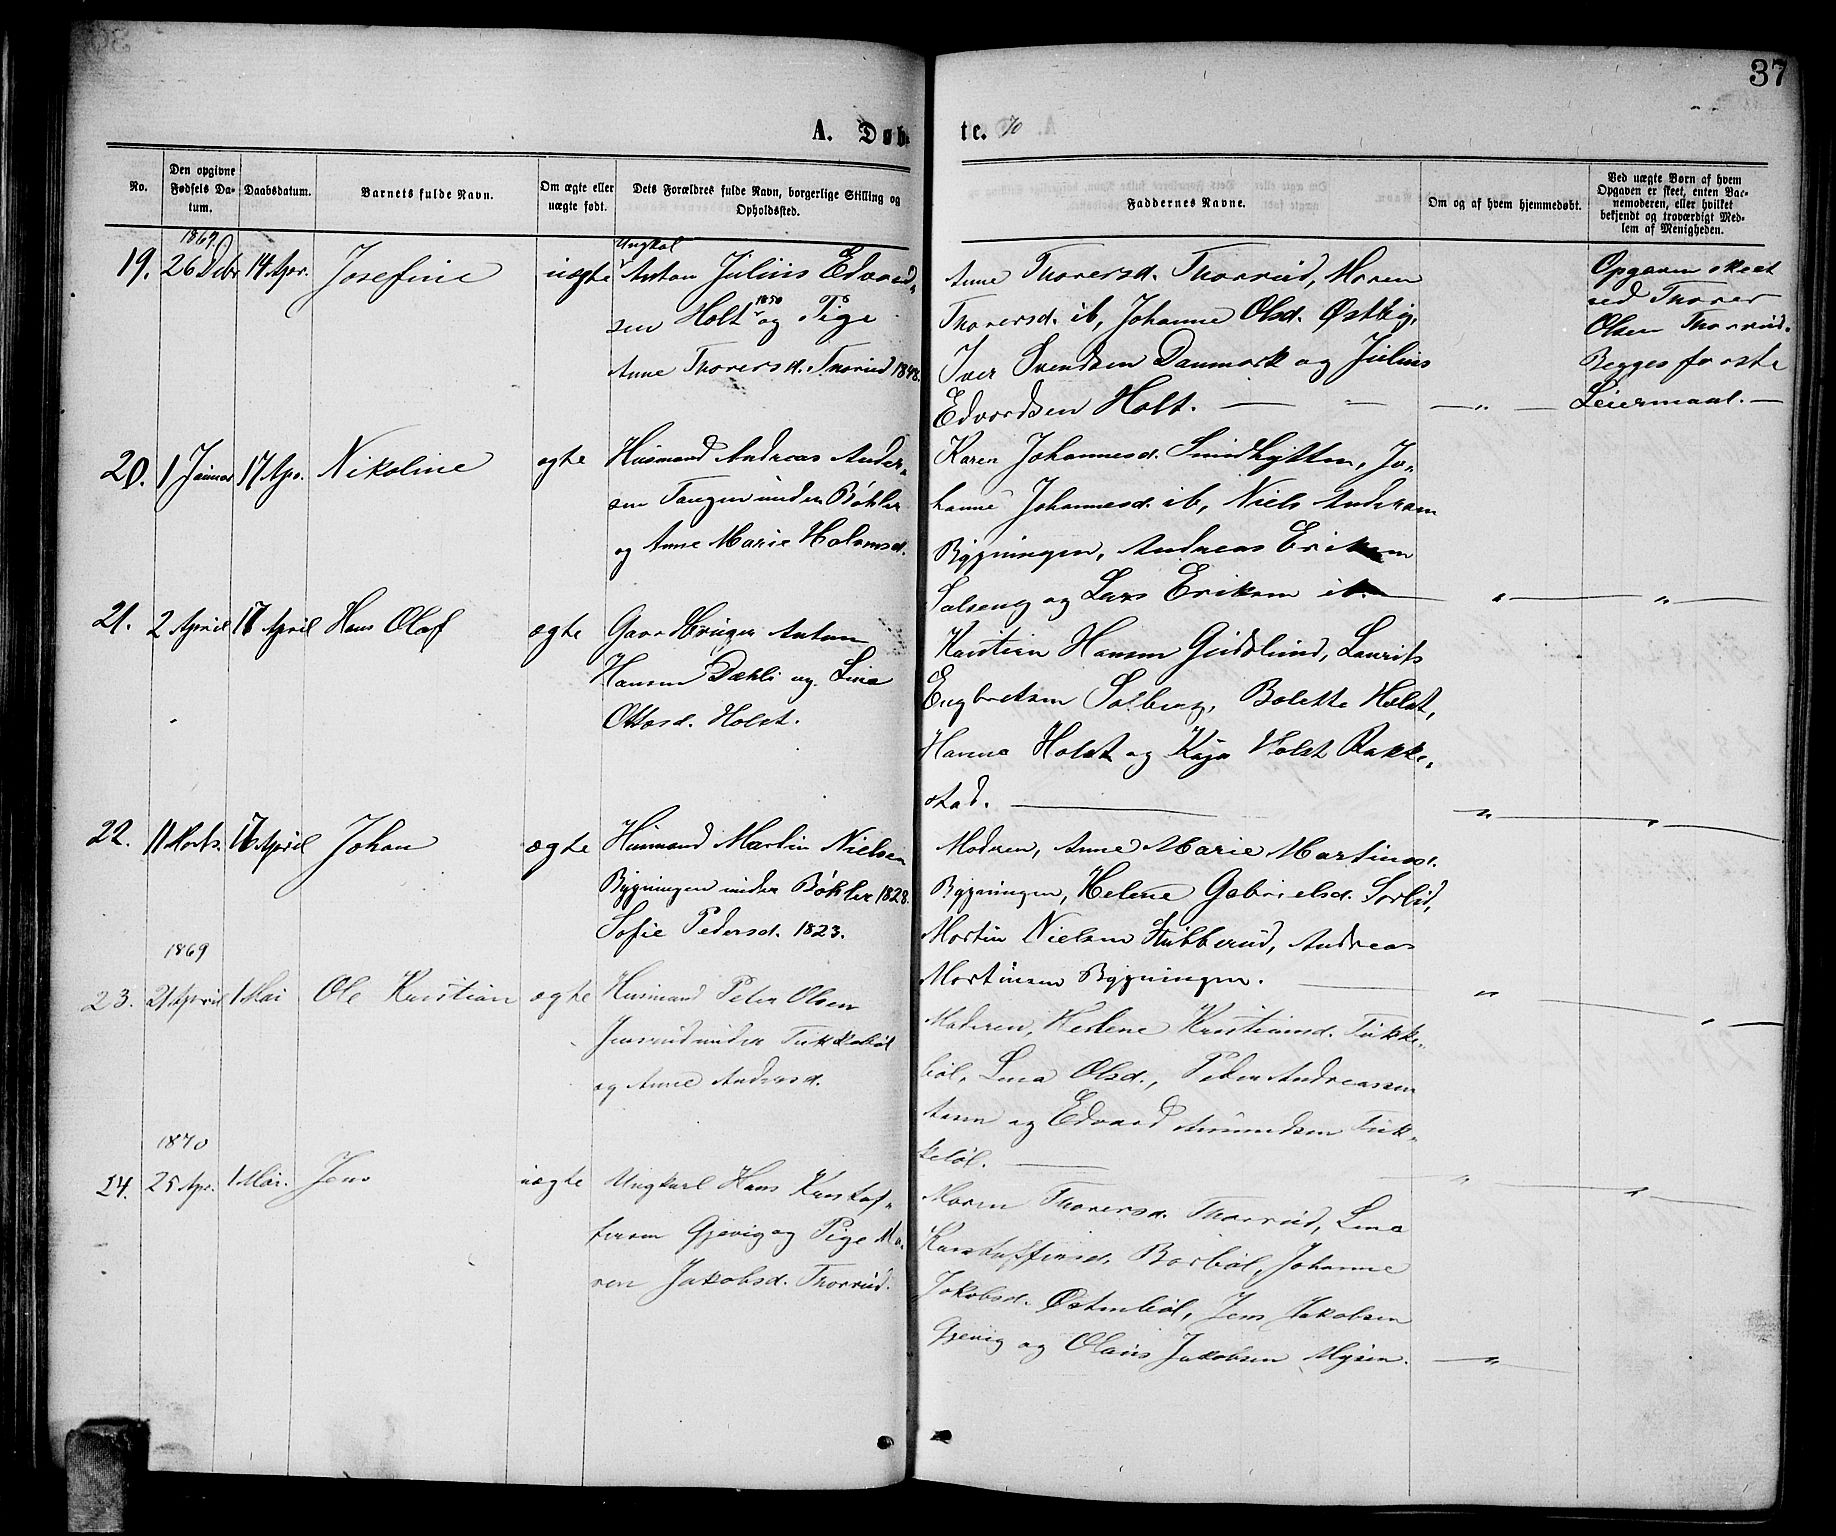 37
A. Døb-
te. 70
No.
Den opgivne Fødsels Da-tum.
Daabsdatum.
Barnets fulde Navn.
Om ægte eller uægte født.
Dets Forældres fulde Navn, borgerlige Stilling og Opholdssted.
Faddernes Navne.
Om og af hvem hjemmedøbt.
Ved uægte Børn af hvem Opgaven er skeet, enten Bar-nemoderen, eller hvilket bekjendt og troværdigt Med-lem af Menigheden.
1869.
19. 26 Debr 14 Apr. Josefine uægte
Ungkal
Anton Julius Edvard-
sen Holt 1850 og Pige
Anne Thorersd. Thorrud 1848.
Anne Thorersd. Thorrud, Maren
Thorersd. ib, Johanne Olsd. Østby,
Iver Svendsen Danmark og Julius
Edvardsen Holt. — " — " —
Opgaven skeet
ved Thorer
Olsen Thorrud.
Begges første
Leiermaal. —
20. 1 Januar 17 Apr. Nikoline ægte
Husmand Andreas Ander-
sen Tangen under Bøhler
og Anne Marie Holmsd.
Karen Johannesd. Smedhytten, Jo-
hanne Johannesd. ib, Niels Andersen
Bygningen, Andreas Eriksen
Solseng og Lars Eriksen ib. — " — " —
21. 2 April 17 April Hans Olaf ægte
Gaardbruger Anton
Hansen Dæhli og Lina
Ottosd. Holst.
Kristian Hansen Gudslund, Laurits
Engbretsen Solberg, Bolette Holst,
Hanna Holst og Kaja Holst Rakke-
stad. — " — " —
22. 11 Marts. 17 April Johan ægte
Husmand Martin Nielsen
Bygningen under Bøhler 1828.
Sofie Pedersd. 1823.
Moderen, Anne Marie Martinsd.
Bygningen, Helene Gabrielsd. Sorlid,
Martin Nielsen Stubberud, Andreas
Martinsen Bygningen. — " — " —
1869
23. 21 April 1 Mai Ole Kristian ægte
Husmand Peter Olsen
Jensrud under Tukkebøl
og Anne Andersd.
Moderen, Helene Kristiansd. Tukke-
bøl, Lina Olsd., Peder Andreassen
og Edvard Amundsen Tuk-
kebøl. — " — " —
1870
24. 25 Apr. 1 Mai. Jens uægte
Ungkarl Hans Kristof-
fersen Gjevig og Pige Ma-
ren Jakobsd. Thorrud.
Maren Thorersd. Thorrud, Lina
Kristoffersd. Borbøl, Johanne
Jakobsd. Østenbøl, Jens Jakobsen
Gjevig og Olaus Jakobsen Mysen. — " —